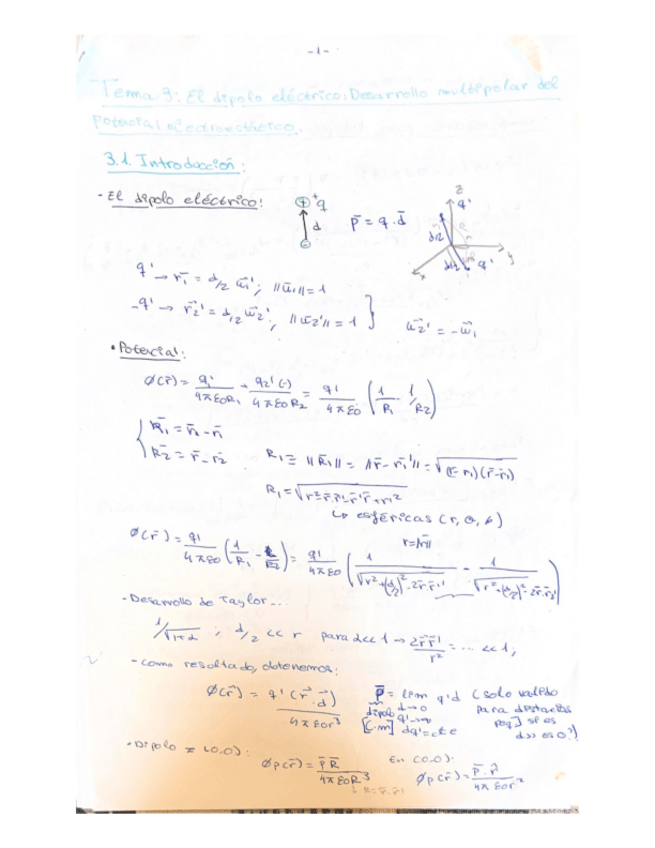 -1-
Tema 3: El dipolo eléctrico: Desarrollo multipolar del
potencial electrostático.
3.1. Introducción:
- El dipolo eléctrico:
+q
d
p̄ = q · d̄
z
q'
d/2
y
d/2
q'
x
q' → r̄₁' = d/2 ū₁'; ||ū₁'|| = 1
-q' → r̄₂' = d/2 ū₂'; ||ū₂'|| = 1 }
ū₂' = -ū₁
• Potencial:
∅(r̄) = q₁'/4πε0R₁ + q₂'(-)/4πε0R₂ = q'/4πε0 (1/R₁ - 1/R₂)
{ R̄₁ = r̄ - r̄₁
R̄₂ = r̄ - r̄₂
R₁ = ||R̄₁|| = ||r̄ - r̄₁'|| = √(r̄ - r̄₁)(r̄ - r̄₁)
R₁ = √r² - r̄·r̄' - r̄'r̄ + r₁'²
↳ esféricas (r, θ, φ)
r = ||r̄||
∅(r̄) = q'/4πε0 (1/R₁ - 1/R₂) = q'/4πε0 (1/√r² + (d/2)² - 2r̄·r̄₁' - 1/√r² + (d/2)² - 2r̄·r̄₂')
- Desarrollo de Taylor...
1/√1±α ; d/2 << r para α<<1 → 2r̄r̄'/r² = ... << 1;
- como resultado, obtenemos:
∅(r̄) = q'(r̄·d̄)/4πε0r³
p̄ = lim q'd (solo válido
dipolo d→0 para distancias
[C·m] q'→∞ peq] si es
dq' = cte d>> es 0?)
• Dipolo ≠ (0,0):
∅p(r̄) = p̄ R̄/4πε0R³
↳ R = r̄-r̄'
En (0,0):
∅p(r̄) = p̄·r̂/4πε0r²